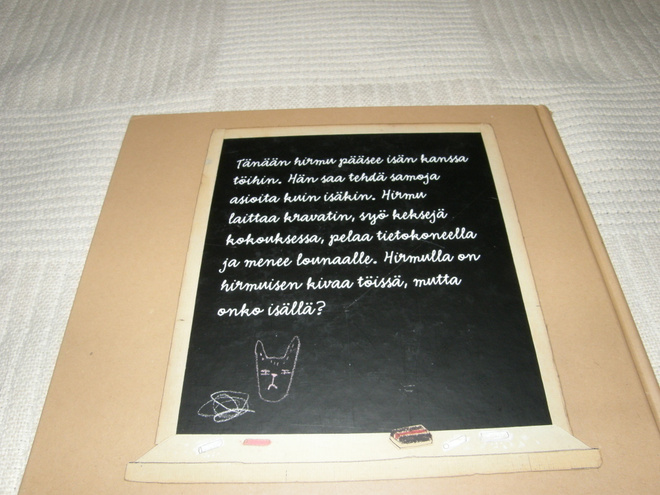 Tänään hirmu pääsee isän kanssa
töihin. Hän saa tehdä samoja
asioita kuin isäkin. Hirmu
laittaa kravatin, syö keksejä
kokouksessa, pelaa tietokoneella
ja menee lounaalle. Hirmulla on
hirmuisen kivaa töissä, mutta
onko isällä?